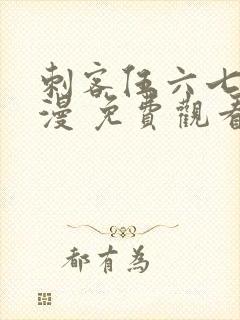 刺客伍六七
漫 免費觀看
都有為